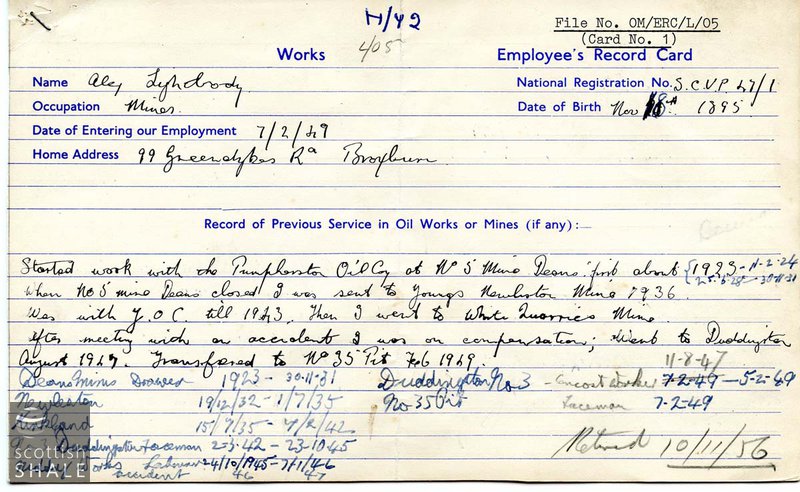 H/42
File No. OM/ERC/L/05
(Card No. 1)
Works 405 Employee's Record Card
Name Alex Lightbody National Registration No. S.C.V.P. 47/1
Occupation Miner. Date of Birth Nov 18th. 1895
Date of Entering our Employment 7/2/49
Home Address 99 Greendykes Rd Broxburn
Record of Previous Service in Oil Works or Mines (if any):—
Started work with the Pumpherston Oil Coy at No 5 Mine Deans. first about 1923 - 11-2-24
When No 5 mine Deans closed I was sent to Youngs Newliston Mine 1936. 30-11-31
Was with Y.O.C. till 1943. Then I went to White Quarries Mine
After meeting with an accident I was on compensation; went to Duddingston
August 1947. Transfered to No 35 Pit Feb 1949
11-8-47
Deans Mines Drawer 1923 - 30-11-31 Duddingston No. 3 - Oncost Worker 7-2-49 - 5-2-49
Newliston 19/12/32 - 1/7/35 No 35 Pit Faceman 7-2-49
Kirkland 15/7/35 - 7/2/42
Duddingston Faceman 2-3-42 - 23-10-45
Works Labourer 24/10/1945 - 7/1/46
accident 46 47
Retired 10/11/56
scottish
SHALE